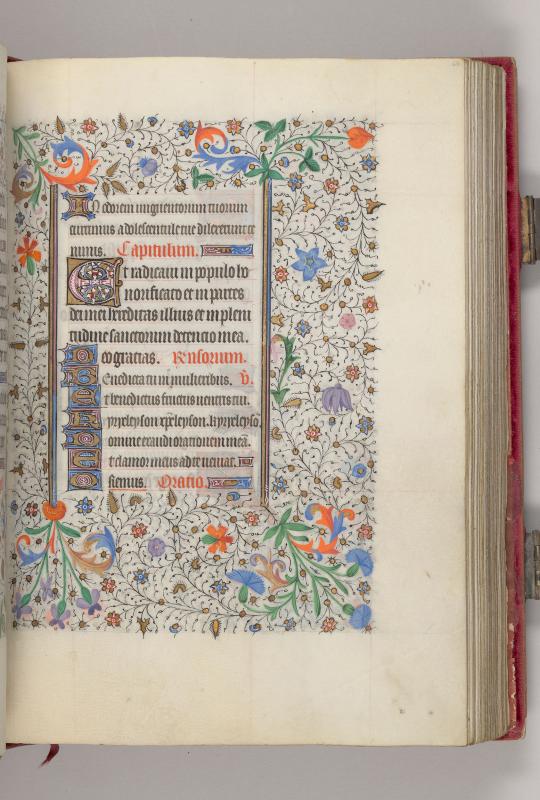 In odorem unguentorum tuorum
currimus adolescentule tue dilexerunt te
nimis. Capitulum.
Et radicaui in populo ho
norificato et in partes
dei mei hereditas illius et in pleni
tudine sanctorum detencio mea.
Deo gracias. Rensorium.
Benedicta tu in mulieribus. V.
Et benedictus fructus uentris tui.
Kyrieleyson. xp̄eleyson. kyrieleysō.
Domine exaudi orationem meā.
Et clamor meus ad te ueniat.
Oremus. Oratio.